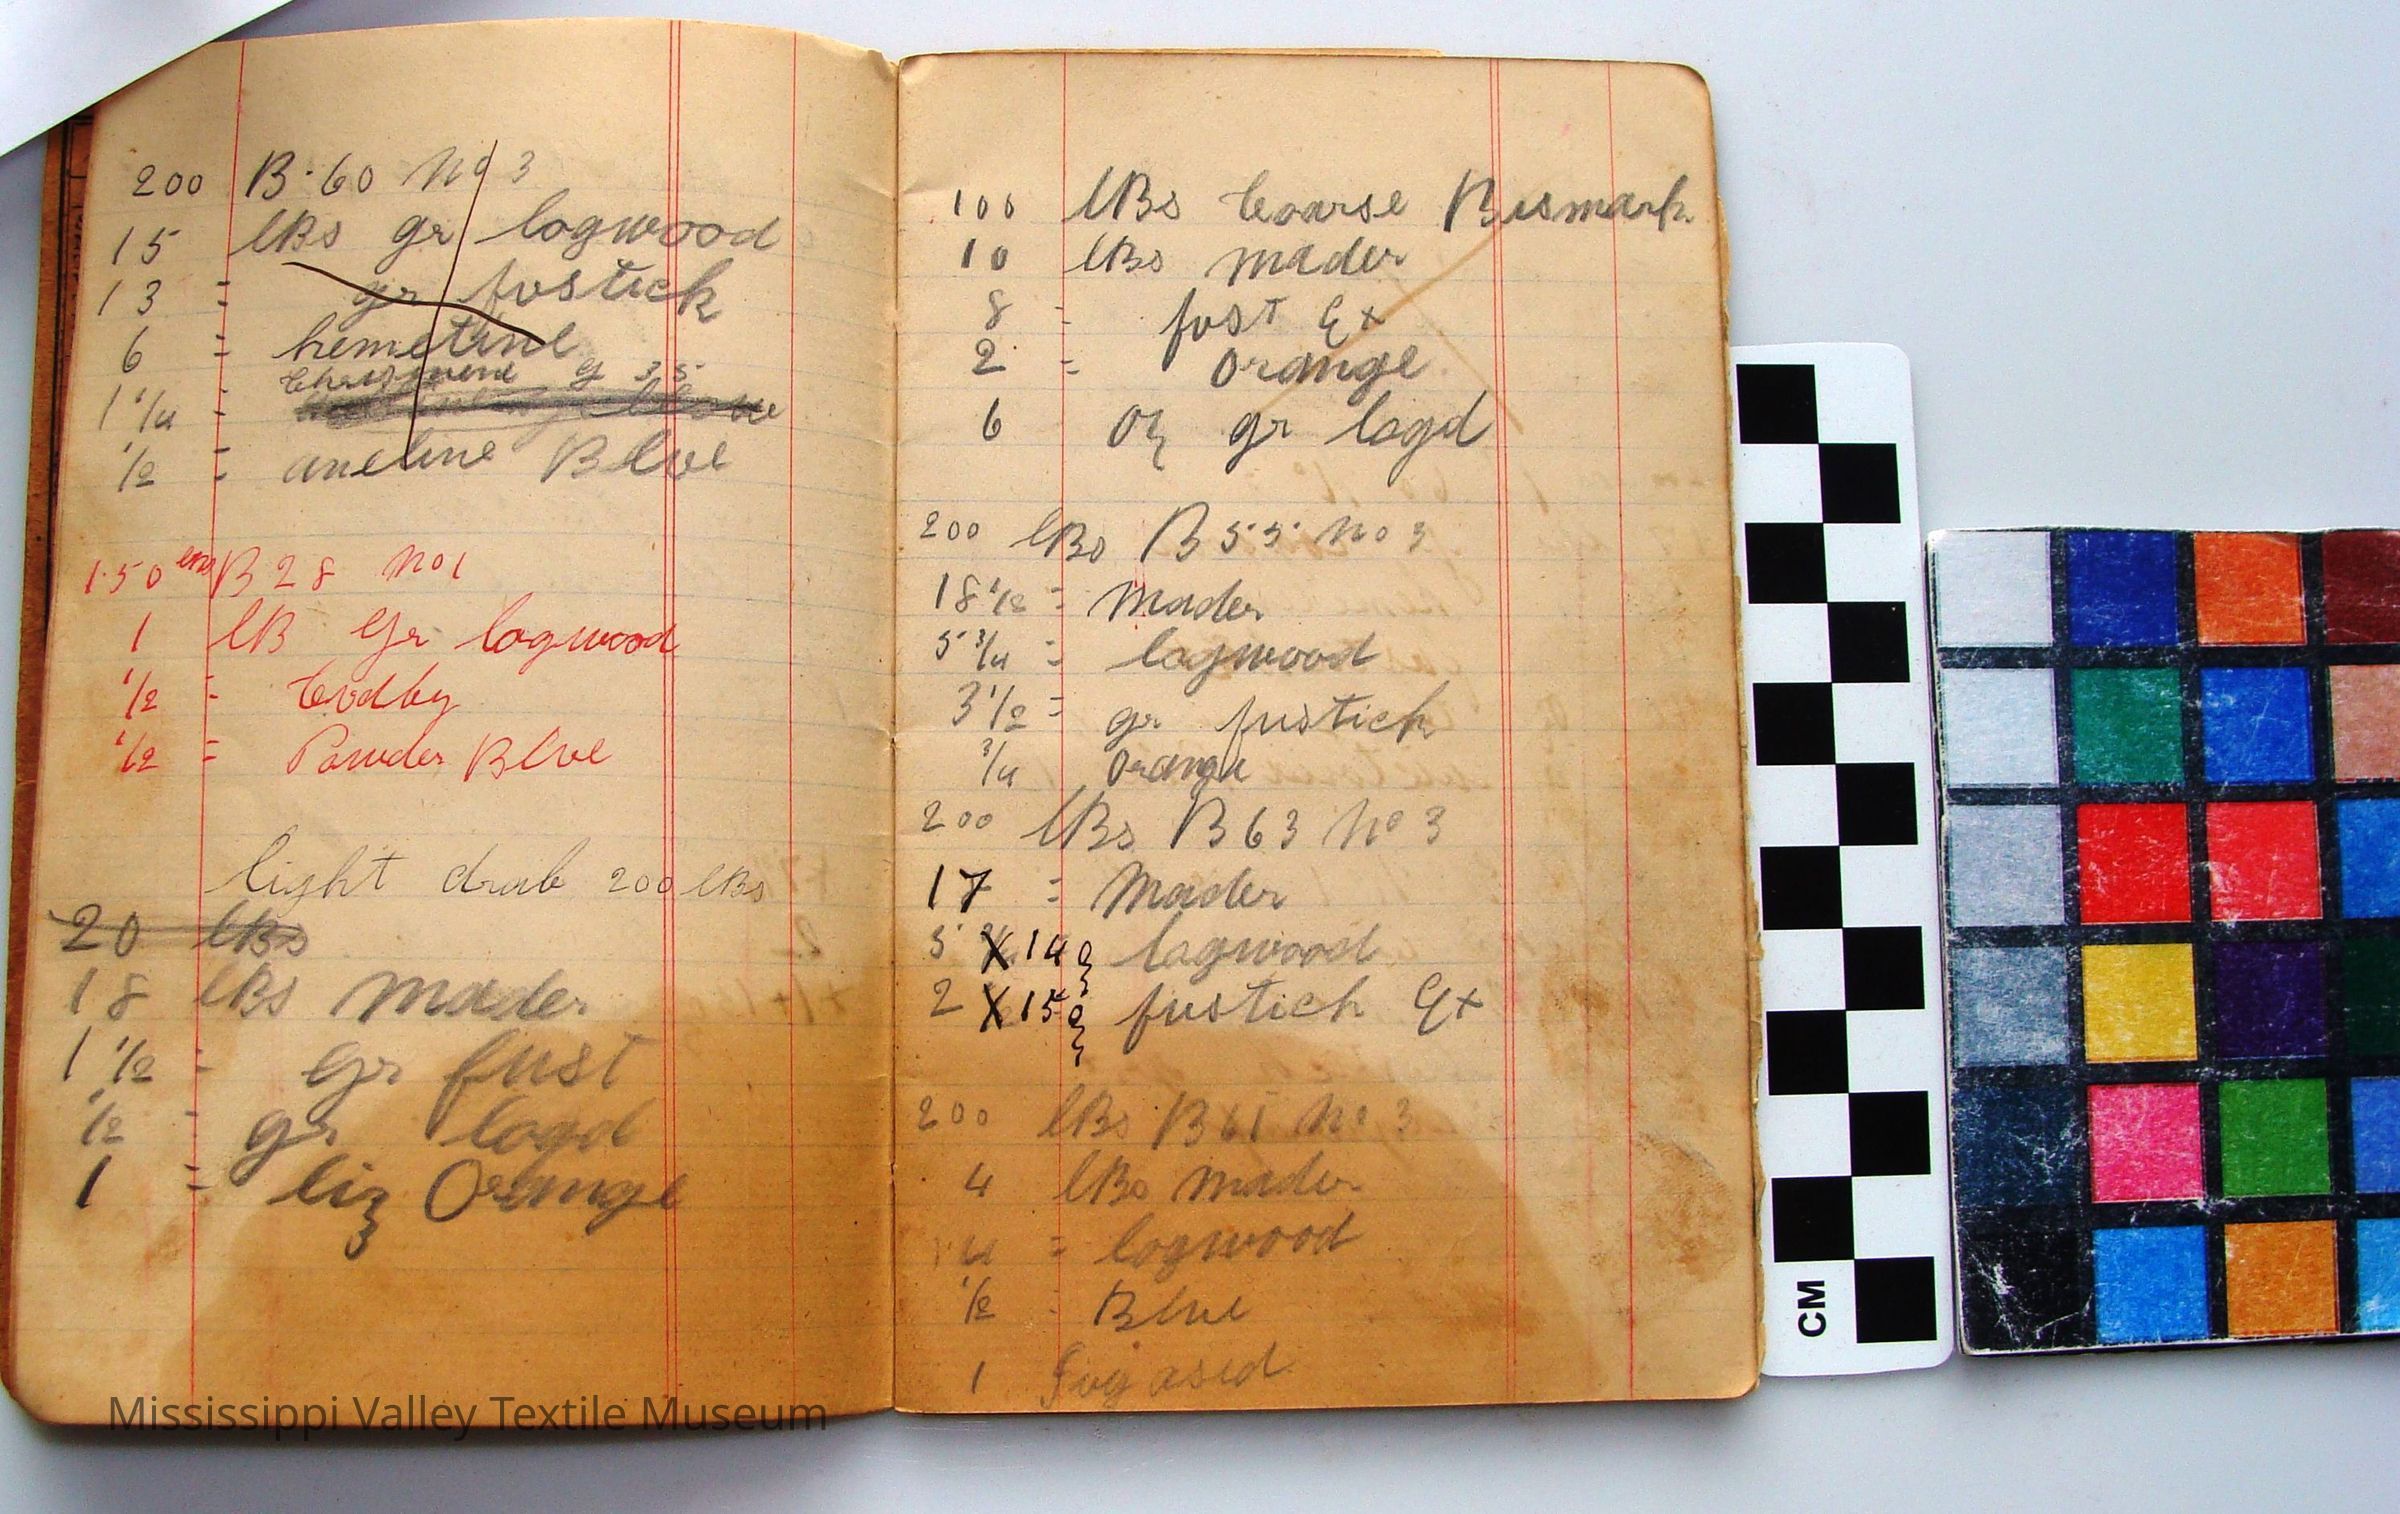 200 B·60 No 3
15 lBs gr logwood
13 = gr fostick
6 = hemetine
G 35
1 1/4 =
1/2 = aneline Blve
150 B 28 No 1
1 lB gr logwood
1/2 = Cvdby
1/2 = Powder Blve
light drab 200 lBs
20 lBs
18 lBs mader
1 1/2 = gr fust
1/2 = gr logd
1 = Orange
100 lBs Coarse Bismark
10 lBs mader
8 = fost Ex
2 = orange
6 oz gr logd
200 lBs B 55 No 3
18 1/2 = mader
5 3/4 = logwood
3 1/2 = gr fustick
3/4 orange
200 lBs B 63 No 3
17 = Mader
5 14 oz logwood
2 15 oz fustick Ex
200 lBs B 61 No 3
4 lBs mader
= logwood
1/2 = Blve
1 Svg asid
CM
Mississippi Valley Textile Museum